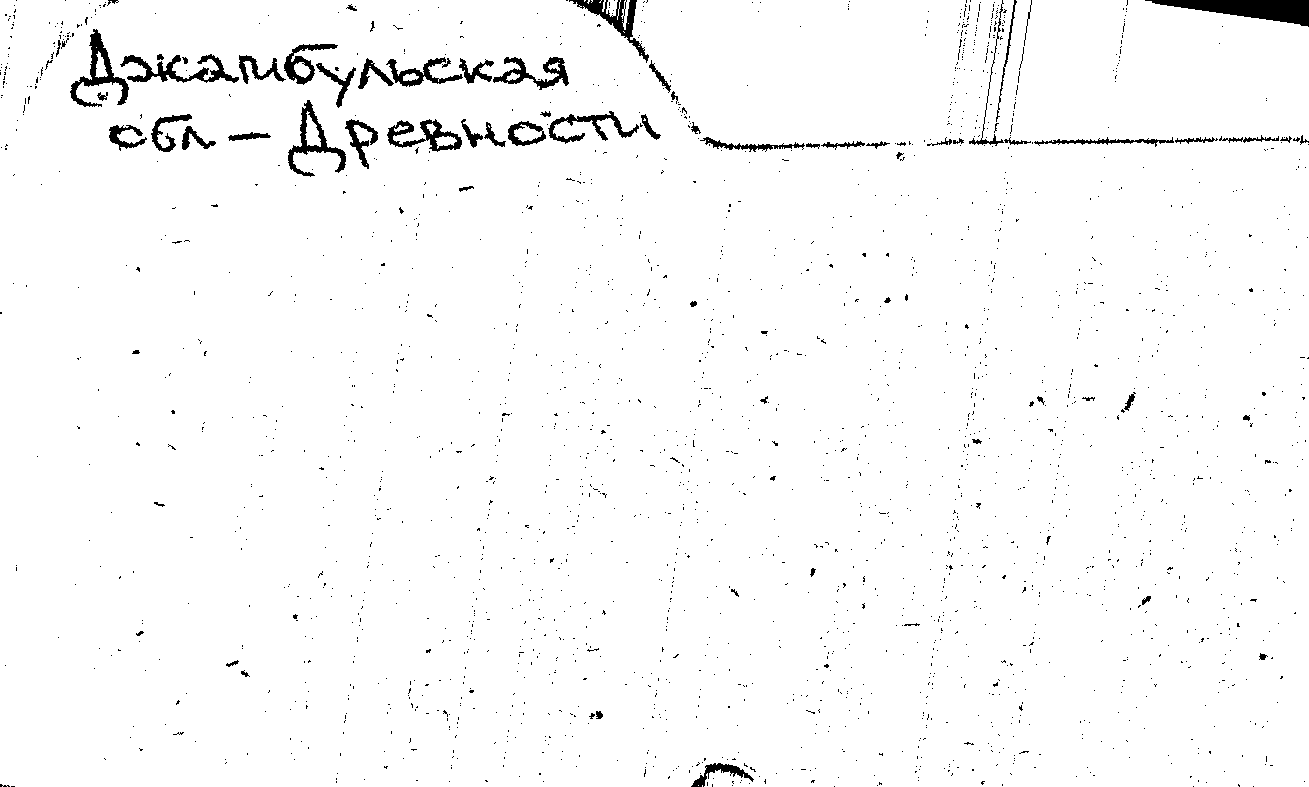 Джамбульская
обл — Древности